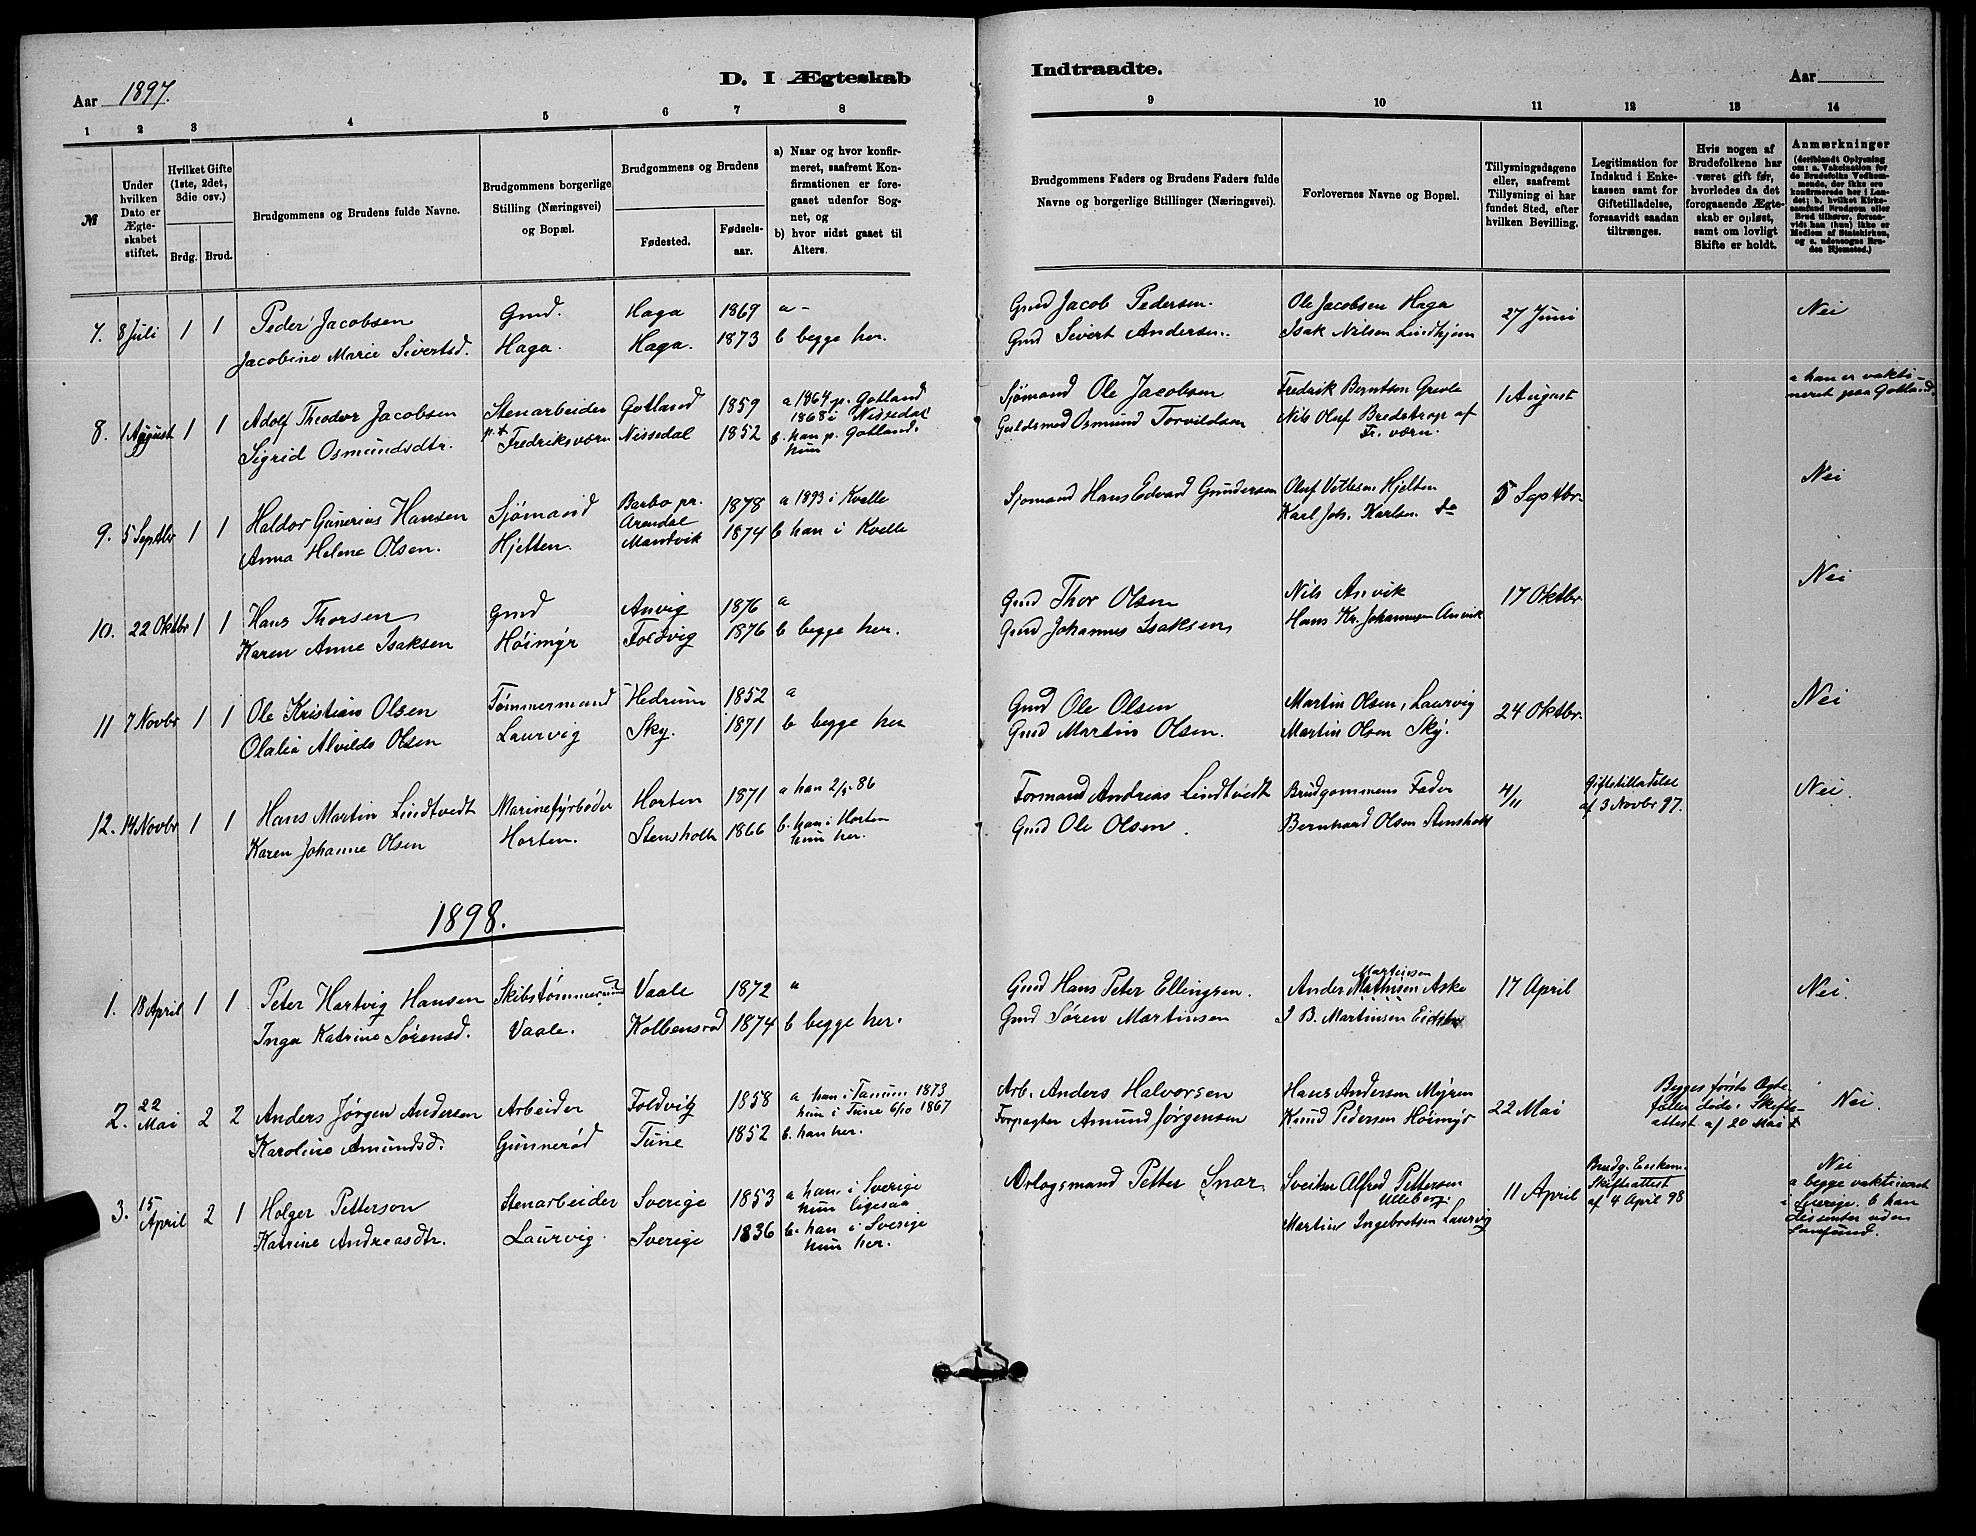 Aar 1897.
D. I Ægteskab
Indtraadte.
Aar
1 2 3 4 5 6 7 8
9 10 11 12 13 14
№
Under hvilken Dato er Ægteskabet stiftet.
Hvilket Gifte (1ste, 2det, 3die osv.)
Brdg. Brud.
Brudgommens og Brudens fulde Navne.
Brudgommens borgerlige Stilling (Næringsvei) og Bopæl.
Brudgommens og Brudens
Fødested.
Fødselsaar.
a) Naar og hvor konfirmeret, saafremt Konfirmationen er foregaaet udenfor Sognet, og
b) hvor sidst gaaet til Alters.
Brudgommens Faders og Brudens Faders fulde Navne og borgerlige Stillinger (Næringsvei).
Forlovernes Navne og Bopæl.
Tillysningsdagene eller, saafremt Tillysning ei har fundet Sted, efter hvilken Bevilling.
Legitimation for Indskud i Enkekassen samt for Giftetilladelse, forsaavidt saadan tiltrænges.
Hvis nogen af Brudefolkene har været gift før, hvorledes da det foregaaende Ægteskab er opløst, samt om lovligt Skifte er holdt.
Anmærkninger
(deriblandt Oplysning om: a. Vakcination for de Brudefolks Vedkommende, der ikke ere konfirmerede her i Landet; b. hvilket Kirkesamfund Brudgom eller Brud tilhører, forsaavidt han (hun) ikke er Medlem af Statskirken, og c. udensogns Brudes Hjemsted.)
7. 8 Juli 1 1 Peder Jacobsen Gmd. Haga 1869 a - Gmd Jacob Pedersen. Ole Jacobsen Haga 27 Juni Nei
Jacobine Marie Sivertsd. Haga. Haga. 1873 b begge her. Gmd Sivert Andersen. Isak Nilsen Lindhjem
8. 1 August 1 1 Adolf Theodor Jacobsen Stenarbeider Gotland 1859 a 1864 p. Gotland 1868 i Nissedal Sjømand Ole Jacobsen Fredrik Berntsen Grevle 1 August a han er vaktineret paa Gotland.
Sigrid Osmundsdtr. p.t. Fredriksværn Nissedal 1852 b. han p. Gotland. hun Guldsmed Osmund Torvildsen Nils Oluf Bredstrup af Fr. værn.
9. 5 Septbr 1 1 Haldor Gunerius Hansen Sjømand Barbo pr. Arendal 1878 a 1893 i Kvelle Sjømand Hans Edvard Gundersen Oluf Vetlesen Hjelten 5 Septbr. Nei
Anna Helene Olsen. Hjelten. Mandvik 1874 b han i Kvelle Karl Joh. Karlsen do
10. 22 Oktbr 1 1 Hans Thorsen Gmd Anvig 1876 a Gmd Thor Olsen Nils Anvik 17 Oktbr. Nei
Karen Anne Isaksen Høimyr Foldvig 1876 b begge her. Gmd Johannes Isaksen Hans Kr. Johannesen Anvik
11 7 Novbr 1 1 Ole Kristian Olsen Tømmermand Hedrum 1852 a Gmd Ole Olsen Martin Olsen, Laurvig 24 Oktbr. Nei
Olalia Alvilde Olsen Laurvig Sky. 1871 b begge her Gmd Martin Olsen. Martin Olsen Sky.
12. 14 Novbr 1 1 Hans Martin Lindtvedt Marinefyrbøder Horten 1871 a han 2/5 86 Formand Andreas Lindtvedt Brudgommens Fader 4/11 Giftetilladelse af 3 Novbr 97. Nei.
Karen Johanne Olsen Horten. Stensholt 1866 b. han i Horten hun her. Gmd Ole Olsen. Bernhard Olsen Stensholt
1898.
1. 18 April 1 1 Peter Hartvig Hansen Skibstømmermand Vaale 1872 a Gmd Hans Peter Ellingsen. Anders Mathisen Martinsen Aske 17 April Nei.
Inga Katrine Sørensd. Vaale. Kolbensrød 1874 b begge her. Gmd Søren Martinsen J B. Martinsen
2. 22 Mai 2 2 Anders Jørgen Andersen Arbeider Foldvig 1858 a han i Tanum 1873 hun i Tune 6/10 1867 Arb. Anders Halvorsen Hans Andersen Myren 22 Mai Begges første Ægtefæller døde. Skifteattest af 20 Mai Nei.
Karoline Amundsd. Gunnerød Tune 1852 b. han her. Forpagter Amund Jørgensen Knud Pedersen Høimyr
3. 15 April 2 1 Holger Petterson Stenarbeider Sverige 1853 a han i Sverige hun ligesaa Orlogsmand Petter Snar Sveitser Alfred Petterson Ulleberg. 11 April Brudg. Enkem. Skifteattest af 4 April 98 Nei a begge vaktineret i Sverige. b han dissenter uden Samfund.
Katrine Andreasdtr. Laurvig. Sverige 1836 b. han i Sverige hun her. Martin Ingebretsen Laurvig